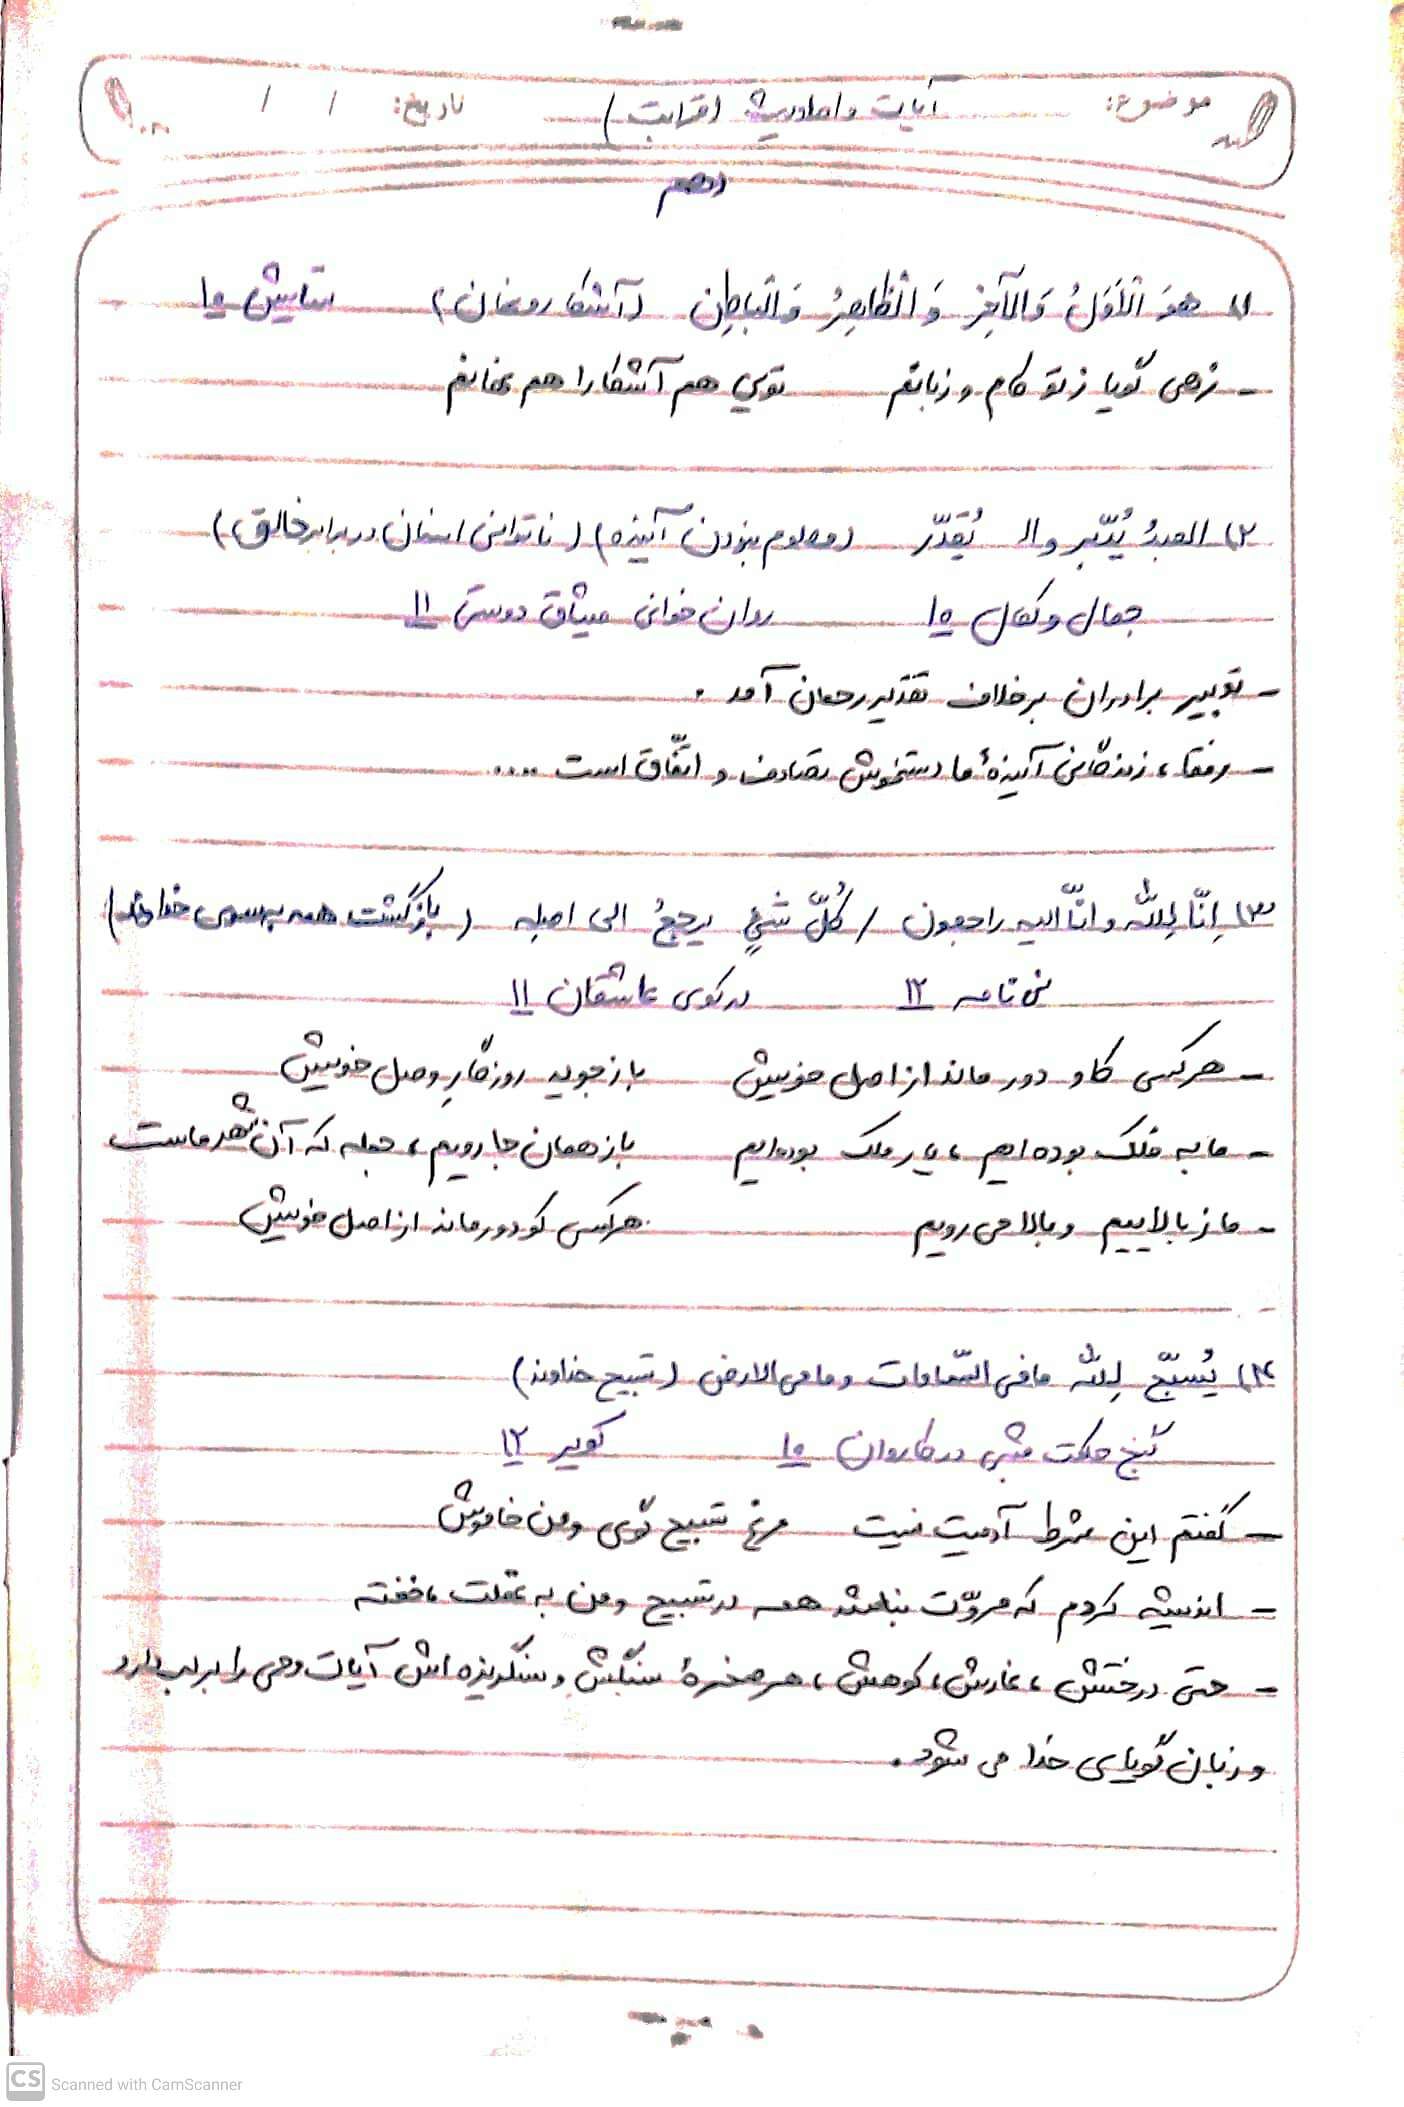 موضوع: آیات و احادیث (قرابت) تاریخ: / /
دهم
۱) هُوَ الْاَوَّلُ وَالْآخِرُ وَ الْظّاهِرُ وَ الْباطِن (آشکار و نهان) ستایش ۱۰
- زهی گویا ز تو کام و زبانم تویی هم آشکارا هم نهانم
۲) العبدُ یُدَبّر و الله یُقَدّر (معلوم نبودن آینده) (ناتوانی انسان در برابر خالق)
جمال و کمال ۱۰ روان خوانی میثاق دوستی ۱۱
- تدبیر برادران برخلاف تقدیر رحمان آمد.
- رفقا، زندگانی آیندهٔ ما دستخوش تصادف و اتّفاق است ....
۳) اِنّا لِلّه و انّا الیه راجعون / کُلّ شَیءٍ یرجعُ الی اصله (بازگشت همه به سوی خداوند)
نی نامه ۱۲ در کوی عاشقان ۱۱
- هر کسی کاو دور ماند از اصل خویش بازجوید روزگارِ وصل خویش
- ما به فلک بوده ایم، یار ملک بوده ایم باز همان جا رویم، جمله که آن شهر ماست
- ما ز بالاییم و بالا می رویم هر کسی کو دور ماند از اصل خویش
۴) یُسَبّح لِلّه ما فی السّماوات و ما فی الارض (تسبیح خداوند)
گنج حکمت شبی در کاروان ۱۰ کویر ۱۲
- گفتم این شرط آدمیت نیست مرغ تسبیح گوی و من خاموش
- اندیشه کردم که مروّت نباشد همه در تسبیح و من به غفلت، خفته
- حتی درختش، غارش، کوهش، هر صخرهٔ سنگش و سنگریزه اش آیات وحی را بر لب دارد
و زبان گویای خدا می شود.
CS Scanned with CamScanner